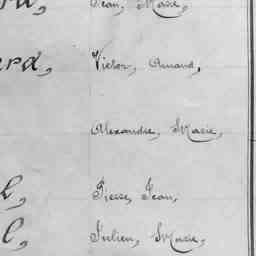 Jean, Marie,
Victor, Amand,
Alexandre, Marie,
Pierre, Jean,
Julien, Marie,